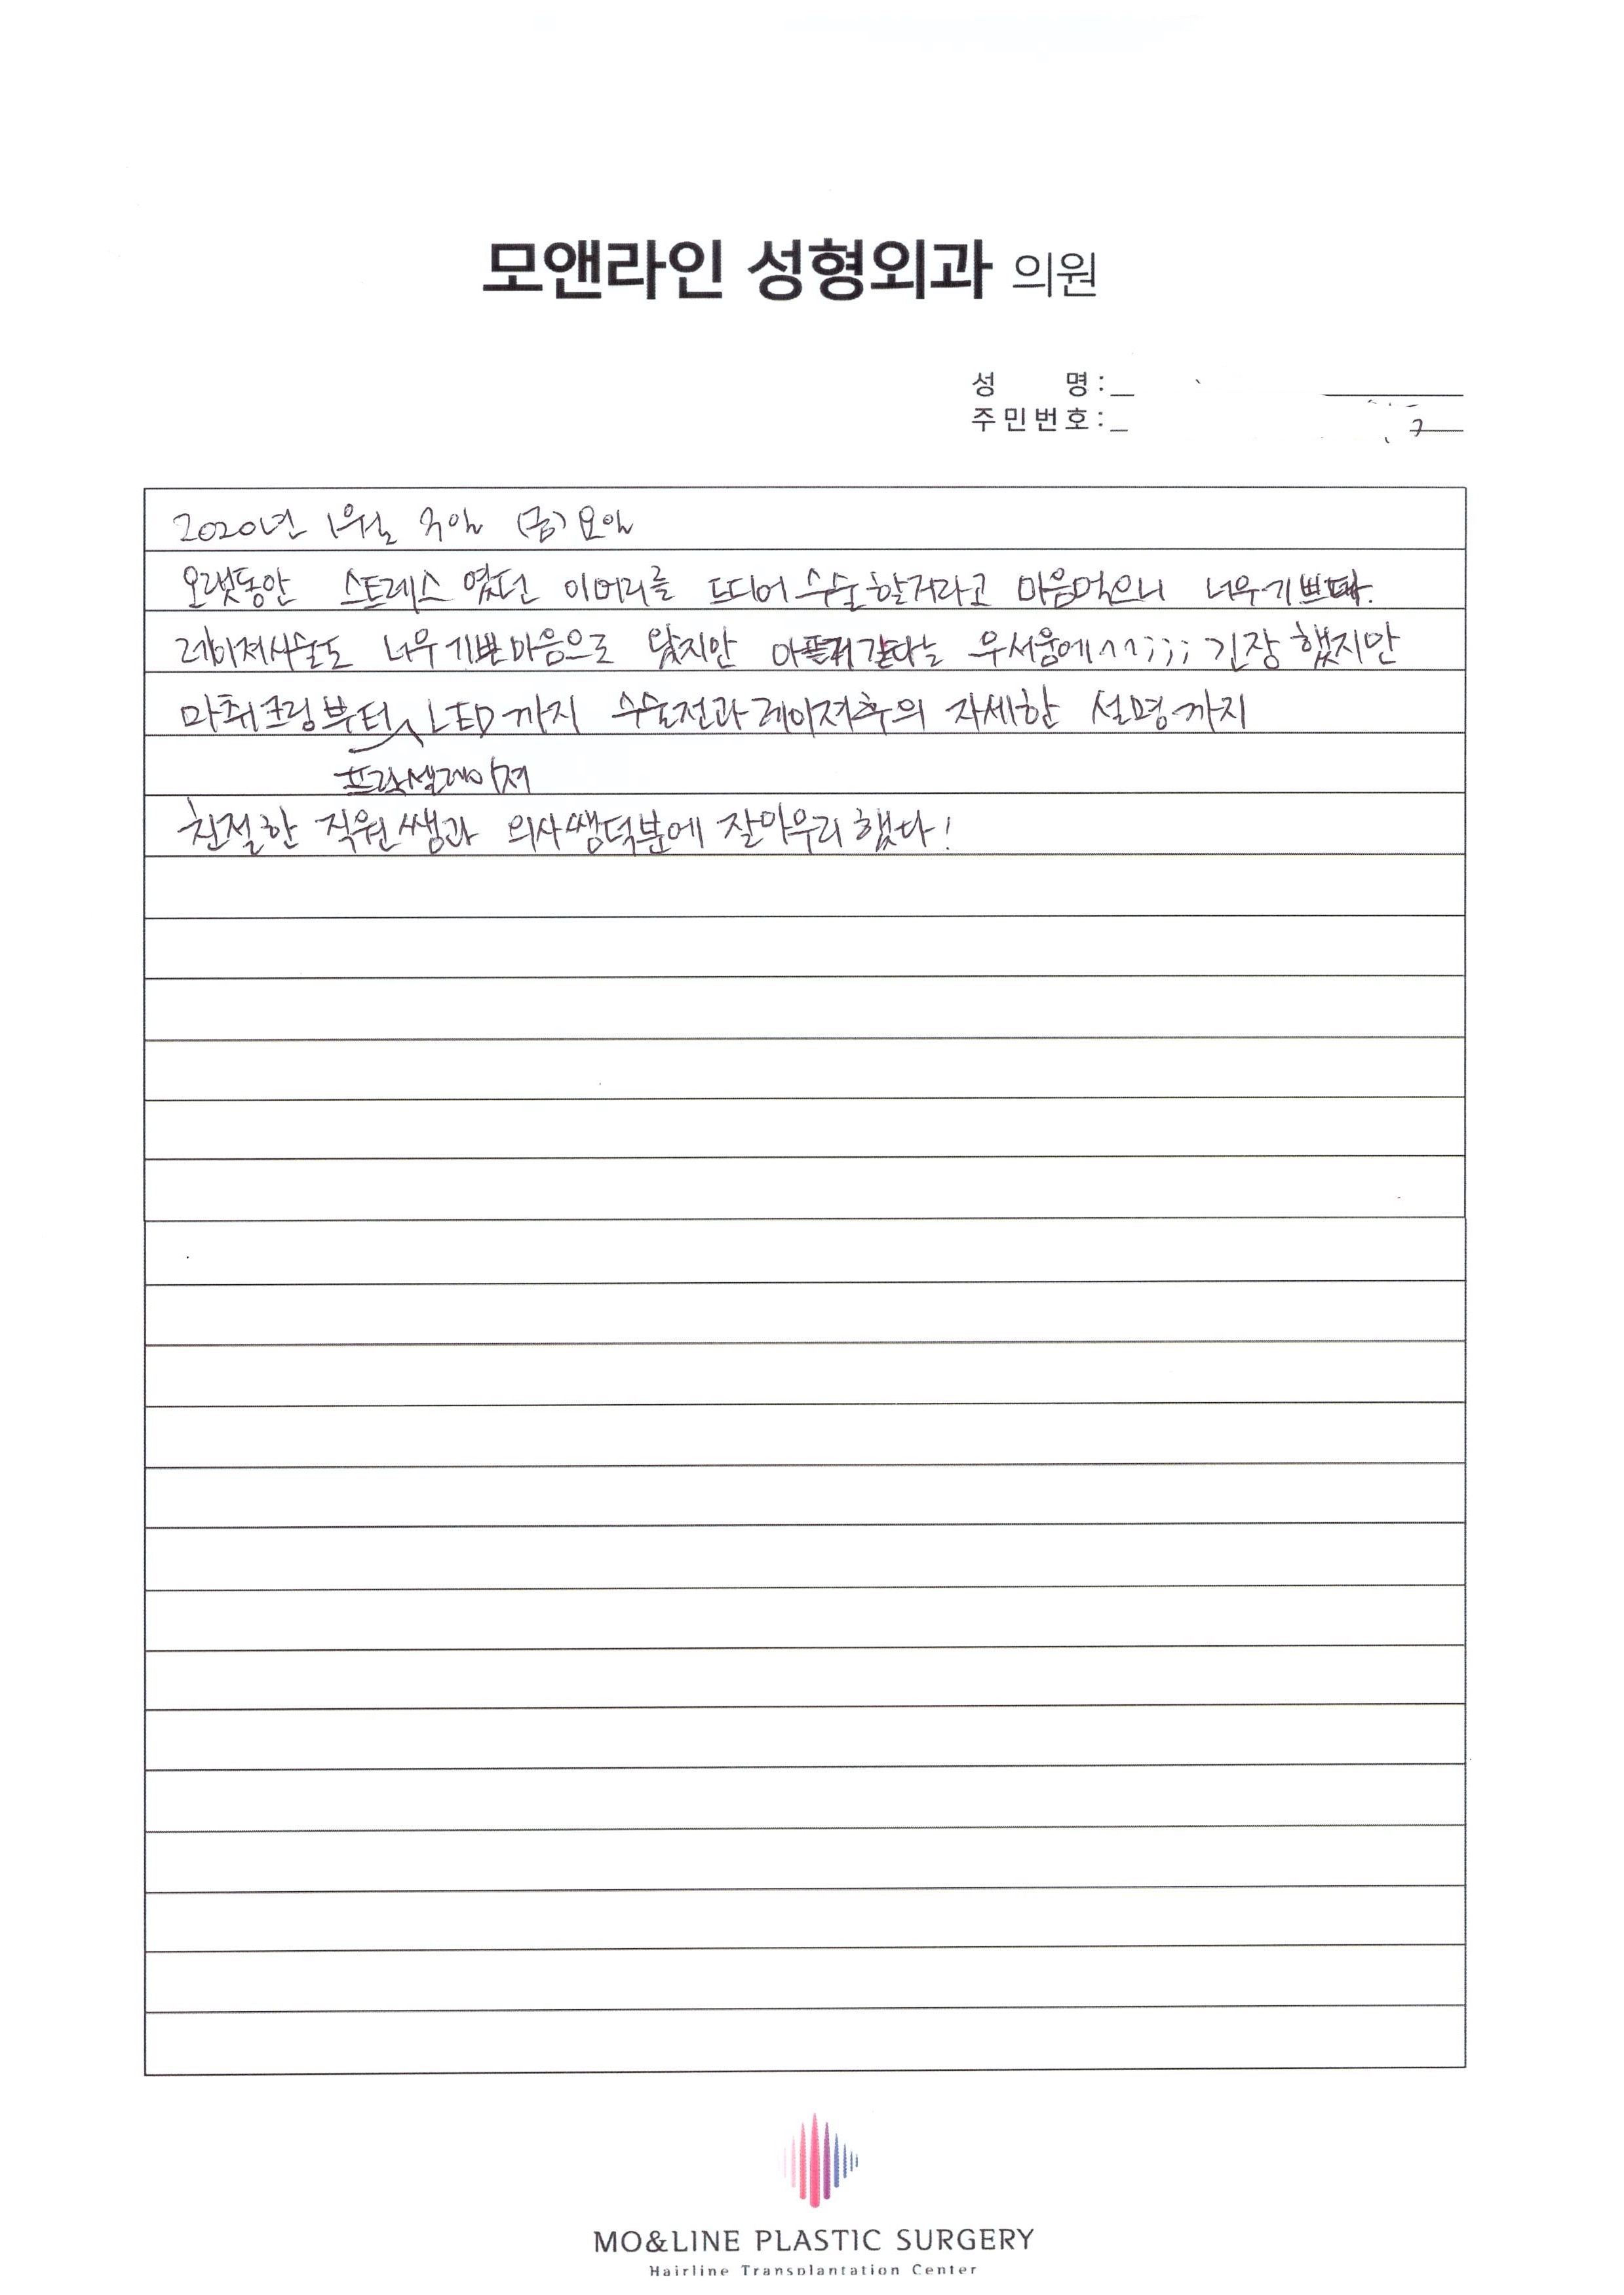 모앤라인 성형외과 의원
성 명 :
주민번호 :
2020년 1월 일 (금)요일
오랫동안 스트레스 였던 이머리를 드디어 수술할거라고 마음먹으니 너무 기쁘다.
레이져시술도 너무 기쁜마음으로 왔지만 아플거 같다는 무서움에^^;;; 긴장 했지만
마취크림부터 LED까지 수술전과 레이져후의 자세한 설명까지
프락셀레이져
친절한 직원쌤과 의사쌤덕분에 잘마무리 했다!
MO&LINE PLASTIC SURGERY
Hairline Transplantation Center